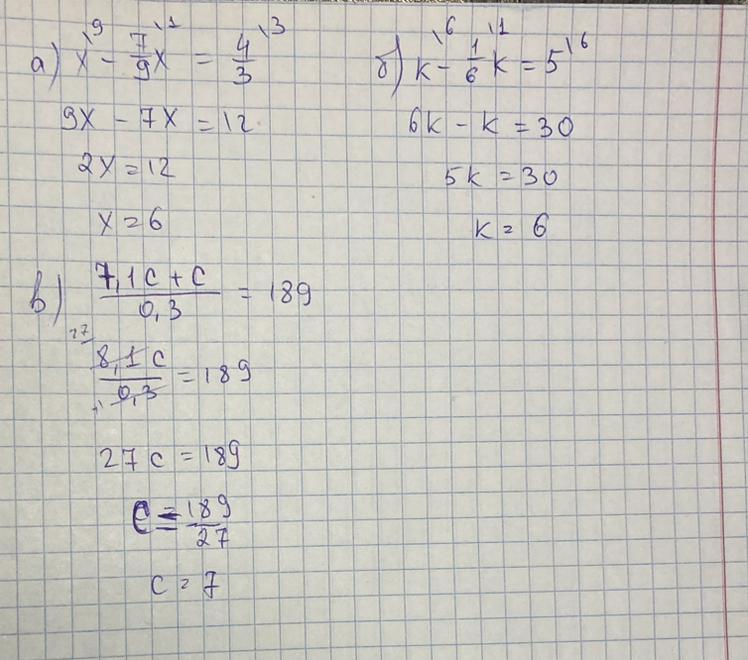 а) x\⁹ - 7/9 x\¹ = 4/3\³
9x - 7x = 12
2x = 12
x = 6
б) k\⁶ - 1/6 k\¹ = 5\⁶
6k - k = 30
5k = 30
k = 6
в) (7,1c + c)/0,3 = 189
27 8,1c / 1 0,3 = 189
27c = 189
c = 189/27
c = 7